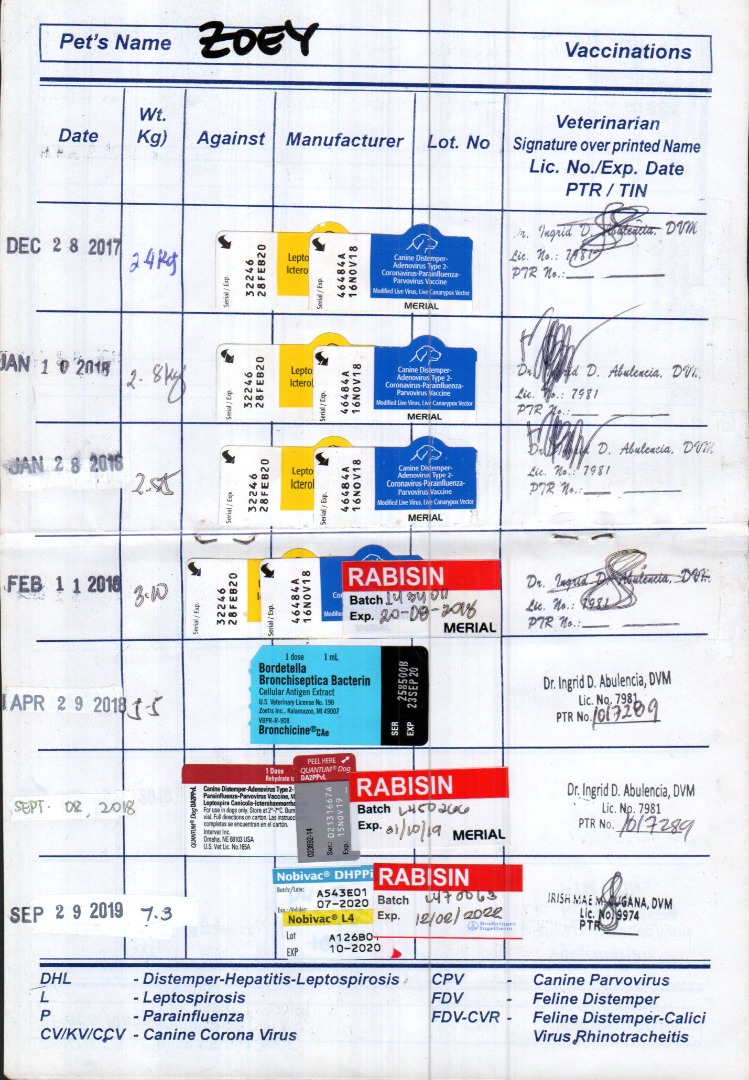 Pet's Name ZOEY Vaccinations
Date Wt. Kg) Against Manufacturer Lot. No Veterinarian
Signature over printed Name
Lic. No./Exp. Date
PTR / TIN
DEC 28 2017
2.4Kg
Serial / Exp.
32246
28FEB20
Lepto
Ictero
46484A
16NOV18
Canine Distemper-
Adenovirus Type 2-
Coronavirus-Parainfluenza-
Parvovirus Vaccine
Modified Live Virus, Live Canarypox Vector
MERIAL
Dr. Ingrid D. Abulencia, DVM
Lic. No.: 7981
PTR No.:
JAN 10 2018
2.8Kg
Serial / Exp.
32246
28FEB20
Lepto
Icterol
46484A
16NOV18
Canine Distemper-
Adenovirus Type 2-
Coronavirus-Parainfluenza-
Parvovirus Vaccine
Modified Live Virus, Live Canarypox Vector
MERIAL
Dr. Ingrid D. Abulencia, DVM
Lic. No.: 7981
PTR No.:
JAN 28 2018
Serial / Exp.
32246
28FEB20
Lepto
Icterol
46484A
16NOV18
Canine Distemper-
Adenovirus Type 2-
Coronavirus-Parainfluenza-
Parvovirus Vaccine
Modified Live Virus, Live Canarypox Vector
MERIAL
Dr. Ingrid D. Abulencia, DVM
Lic. No.: 7981
PTR No.:
FEB 11 2018
3.10
Serial / Exp.
32246
28FEB20
46484A
16NOV18
RABISIN
Batch
Exp. 20-08-2018
MERIAL
Dr. Ingrid D. Abulencia, DVM
Lic. No.: 7981
PTR No.:
APR 29 2018
1 dose 1 mL
Bordetella
Bronchiseptica Bacterin
Cellular Antigen Extract
U.S. Veterinary License No. 190
Zoetis Inc., Kalamazoo, MI 49007
VBPR-R-908
Bronchicine® CAe
SER 258500B
EXP 23SEP20
Dr. Ingrid D. Abulencia, DVM
Lic. No. 7981
PTR No. 1017289
SEPT. 02, 2018
QUANTUM® Dog DA2PPvL
1 Dose
Rehydrate to
Canine Distemper-Adenovirus Type 2-
Parainfluenza-Parvovirus Vaccine,
Leptospira Canicola-Icterohaemorrha
For use in dogs only. Store at 2°-7°C. Burn
vial. Full directions on carton. Las instrucc
completas se encuentran el carton.
Intervet Inc.
Omaha, NE 68103 USA
U.S. Vet Lic. No. 165A
PEEL HERE
QUANTUM® Dog
DA2PPvL
Ser.: 02131667A
Exp.: 15NOV19
RABISIN
Batch L450266
Exp. 31/10/19
Dr. Ingrid D. Abulencia, DVM
Lic. No. 7981
PTR No. 1017289
SEP 29 2019
7.3
Nobivac® DHPPi
A543E01
07-2020
Nobivac® L4
Lot A126B0
EXP 10-2020
RABISIN
Batch L470063
Exp. 12/02/2022
Boehringer
Ingelheim
IRISH MAE M. DVM
Lic. No. 9974
PTR
DHL - Distemper-Hepatitis-Leptospirosis
L - Leptospirosis
P - Parainfluenza
CV/KV/CCV - Canine Corona Virus
CPV - Canine Parvovirus
FDV - Feline Distemper
FDV-CVR - Feline Distemper-Calici
Virus Rhinotracheitis